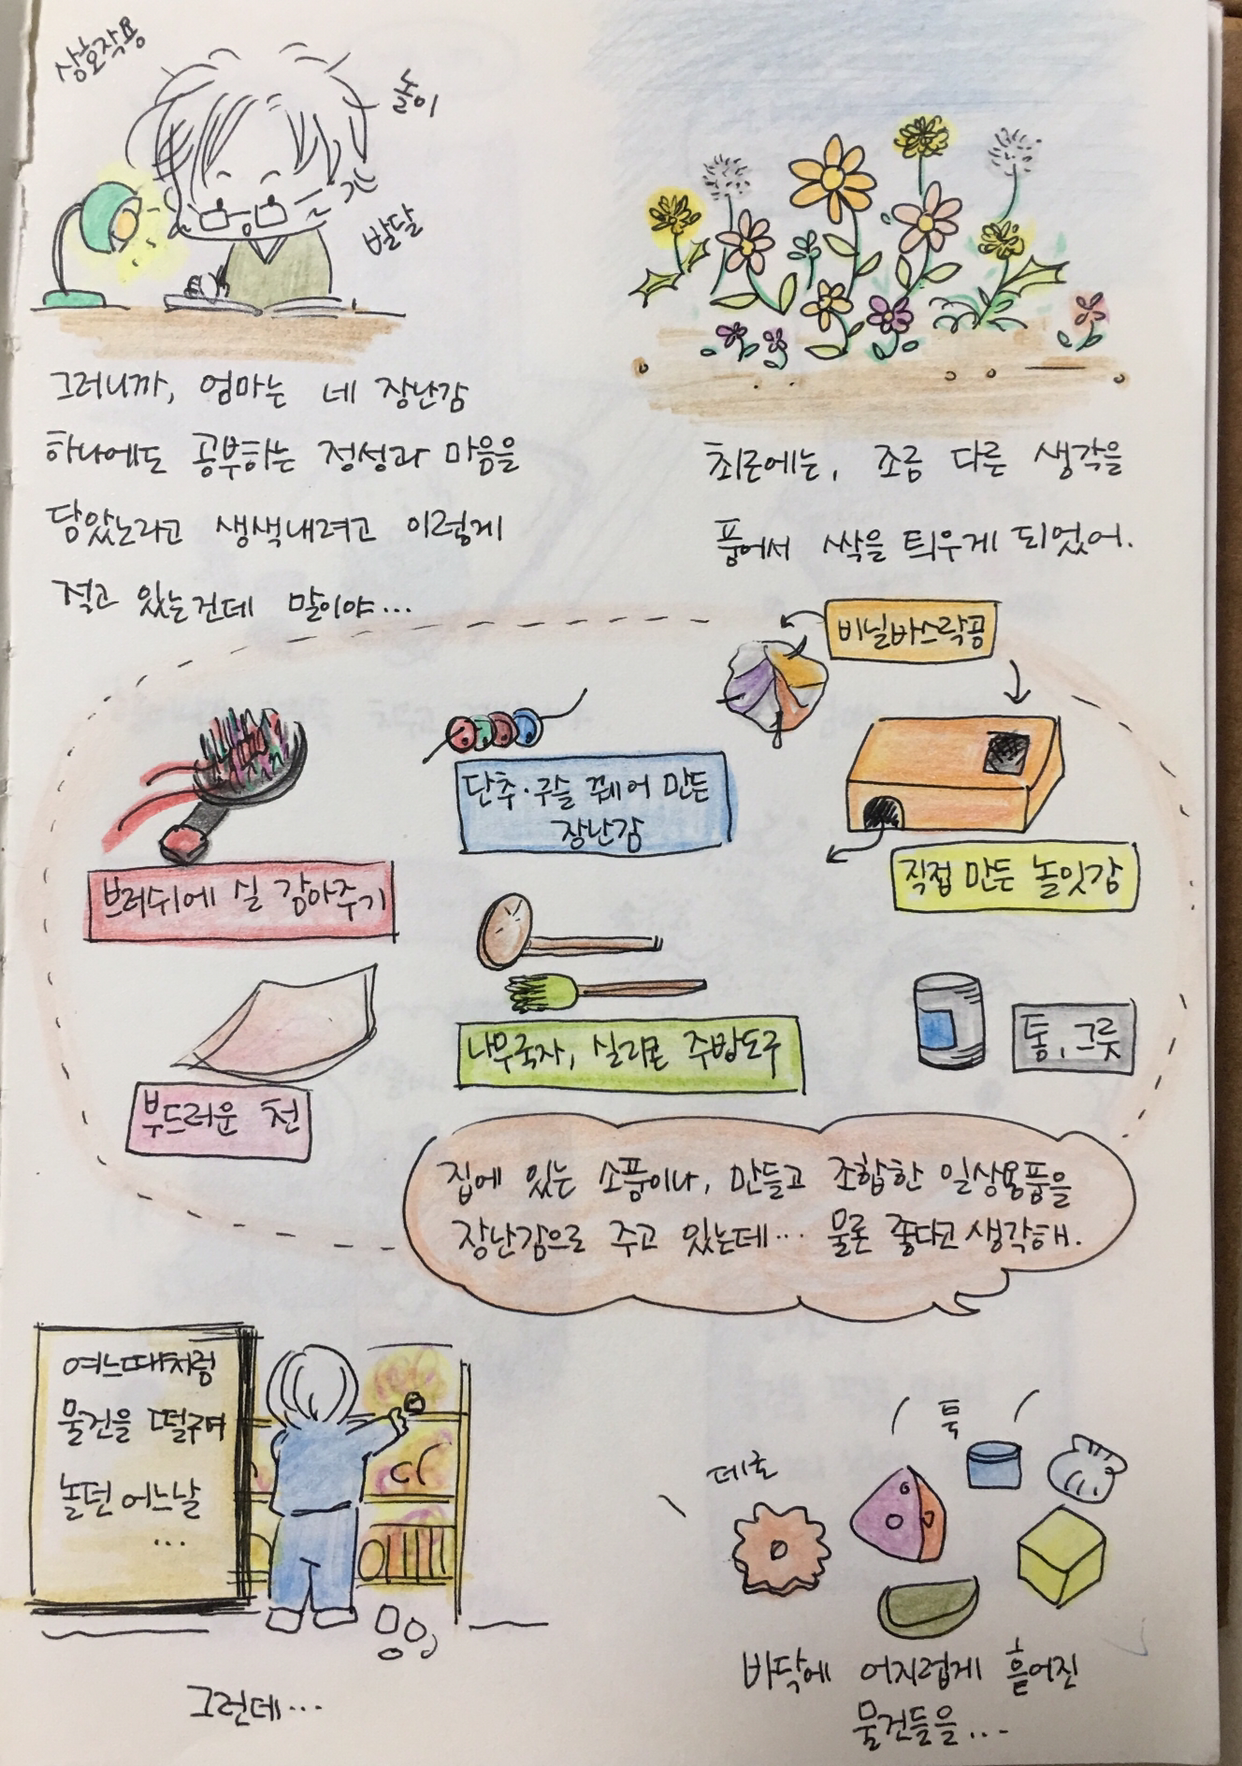 상호작용
놀이
발달
그러니까, 엄마는 네 장난감
하나에도 공부하는 정성과 마음을
담았노라고 생색내려고 이렇게
적고 있는건데 말이야...
최근에는, 조금 다른 생각을
품어서 싹을 틔우게 되었어.
비닐바스락공
브러쉬에 실 감아주기
단추·구슬 꿰어 만든
장난감
직접 만든 놀잇감
부드러운 천
나무국자, 실리콘 주방도구
통, 그릇
집에 있는 소품이나, 만들고 조합한 일상용품을
장난감으로 주고 있는데... 물론 좋다고 생각해.
여느때처럼
물건을 떨구며
놀던 어느날
...
그런데...
툭
데호
바닥에 어지럽게 흩어진
물건들을...